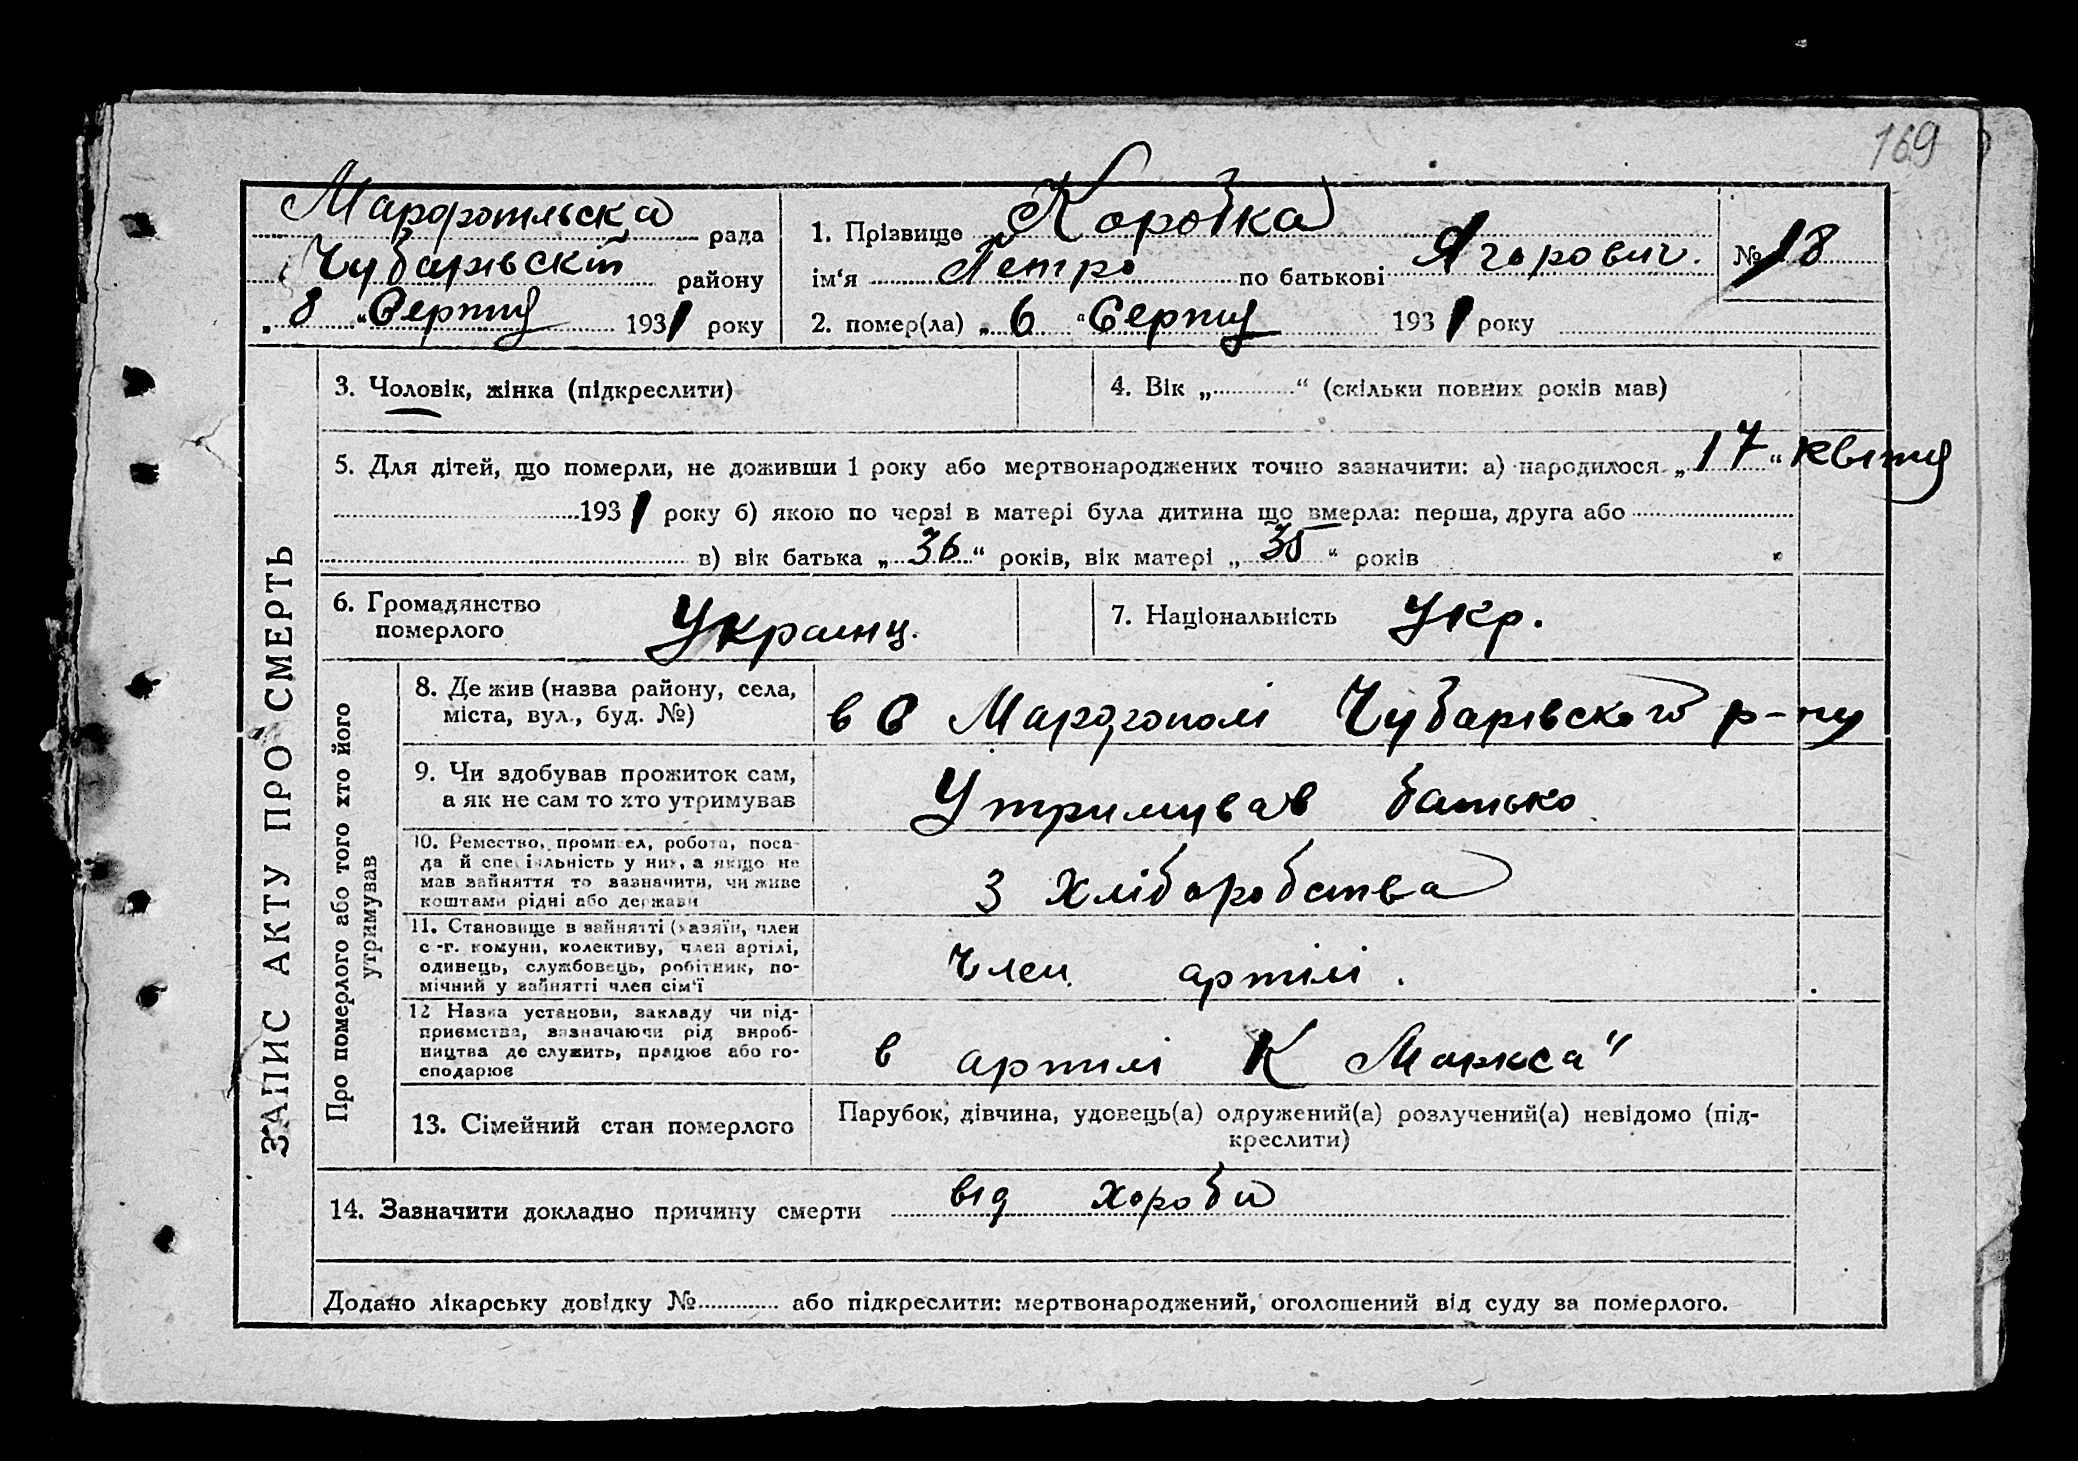 169
Марфопільска рада
Чубарівскій району
„ 8 “ Серпня 1931 року
1. Прізвище Коробка
ім‘я Петро по батькові Ягорович.
№ 18
2. помер(ла) „ 6 “ Серпня 1931 року
ЗАПИС АКТУ ПРО СМЕРТЬ
3. Чоловік, жінка (підкреслити)
4. Вік „ “ (скільки повних років мав)
5. Для дітей, що померли, не доживши 1 року або мертвонароджених точно зазначити: а) народилося „ 17 “ квітня
1931 року б) якою по черзі в матері була дитина що вмерла: перша, друга або
в) вік батька „ 36 “ років, вік матері „ 35 “ років
6. Громадянство
померлого
Украинц.
7. Національність Укр.
Про померлого або того хто його
утримував
8. Де жив (назва району, села,
міста, вул., буд. №)
в с Марфополі Чубарівского р-ну
9. Чи здобував прожиток сам,
а як не сам то хто утримував
Утримував батько
10. Ремество, промисел, робота, поса-
да й спеціяльність у них, а якщо не
мав зайняття то зазначити, чи живе
коштами рідні або держави
З хліборобства
11. Становище в зайнятті (хазяїн, член
с.-г. комуни, колективу, член артілі,
одинець, службовець, робітник, по-
мічний у зайнятті член сім‘ї
Член артілі.
12 Назва установи, закладу чи під-
приємства, зазначаючи рід вироб-
ництва де служить, працює або го-
сподарює
в артилі К Маркса"
13. Сімейний стан померлого
Парубок, дівчина, удовець(а) одружений(а) розлучений(а) невідомо (під-
креслити)
14. Зазначити докладно причину смерти від хороби
Додано лікарську довідку № або підкреслити: мертвонароджений, оголошений від суду за померлого.